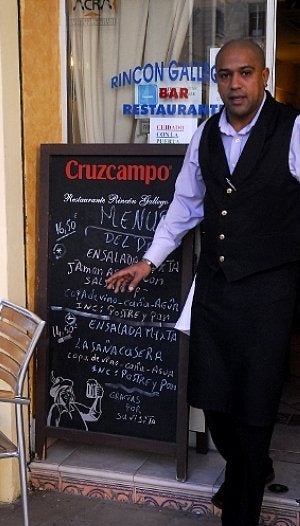 ACRA
RINCON GALLEG
BAR
RESTAURANTE
CUIDADO
CON LA
PUERTA
Cruzcampo
Restaurante Rincón Gallego
MENUS
DEL D
16,50€
ENSALADA MIXTA
Jamon
SAL
COPA de vino-caña-Agua
INC: POSTRE y pan
14,50
ENSALADA MIXTA
LASAÑA CASERA
copa de vino-caña-Agua
INC: POSTRE y pan
GRACIAS
POR
SU VISITA